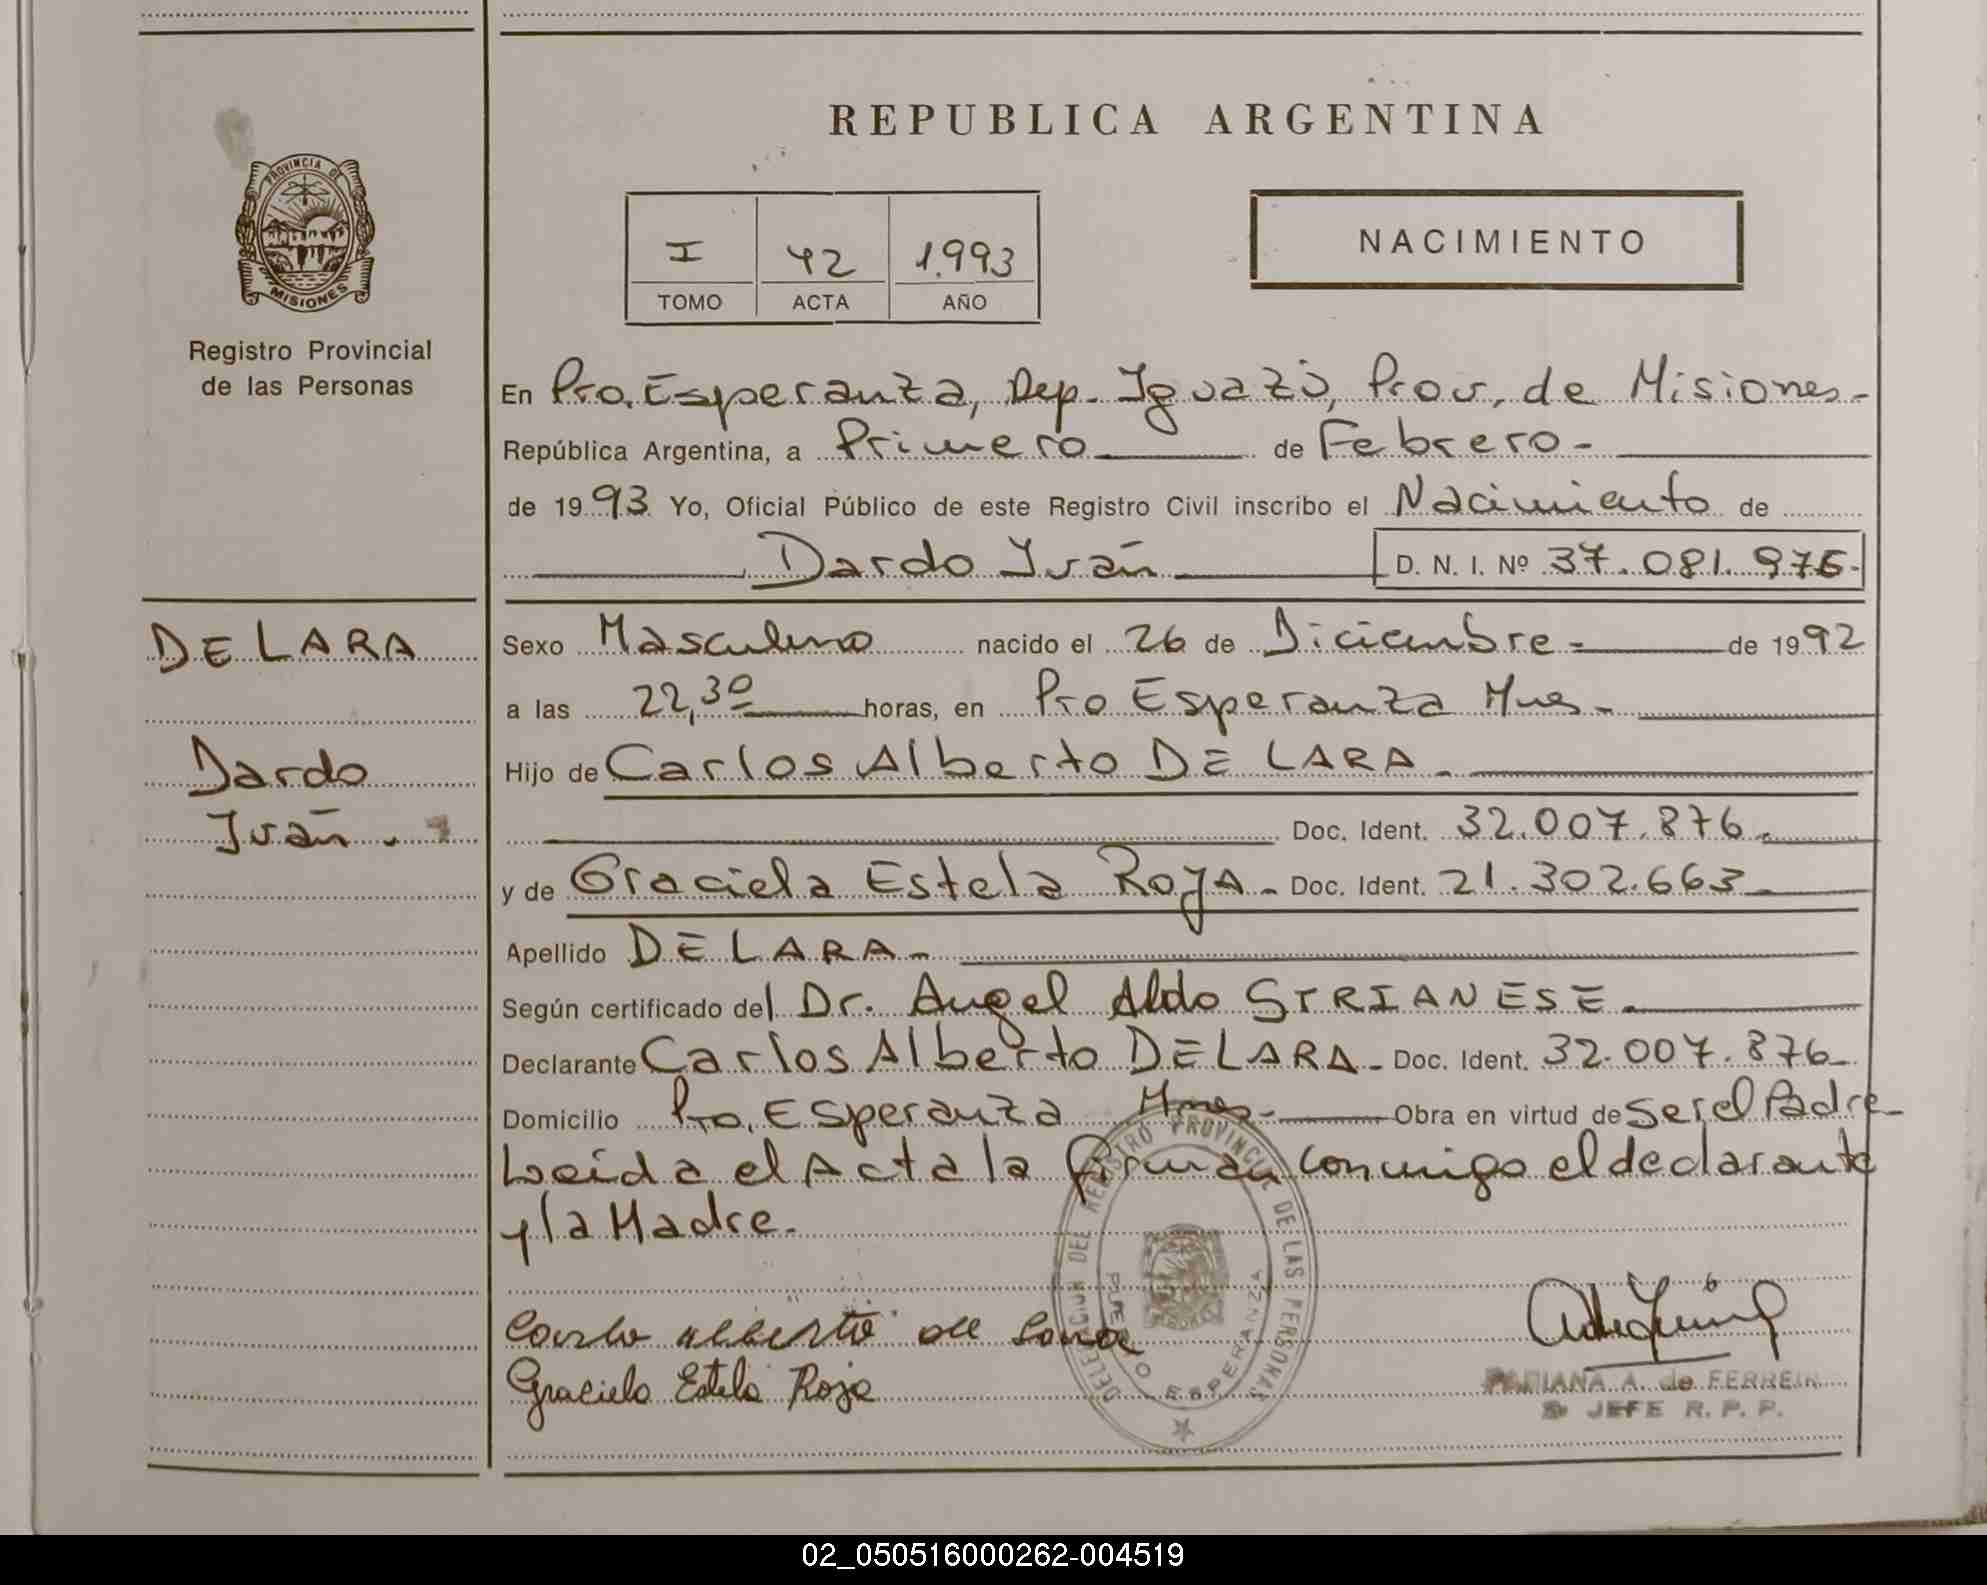 REPUBLICA ARGENTINA
PROVINCIA DE
MISIONES
Registro Provincial
de las Personas
I 42 1.993
TOMO ACTA AÑO
NACIMIENTO
En Pto. Esperanza, Dep. Iguazú, Prov. de Misiones.-
República Argentina, a Primero de Febrero.-
de 1993 Yo, Oficial Público de este Registro Civil inscribo el Nacimiento de
Dardo Iván D. N. I. Nº 37.081.976.-
DE LARA
Dardo
Iván.-
Sexo Masculino nacido el 26 de Diciembre.- de 1992
a las 22,30 horas, en Pto Esperanza Mnes.-
Hijo de Carlos Alberto DE LARA.-
Doc. Ident. 32.007.876.-
y de Graciela Estela ROJA.- Doc. Ident. 21.302.663.-
Apellido DE LARA.-
Según certificado del Dr. Angel Aldo STRIANESE.-
Declarante Carlos Alberto DE LARA.- Doc. Ident. 32.007.876.-
Domicilio Pto. Esperanza Mnes.- Obra en virtud de ser el Padre.-
Leida el Acta la firman conmigo el declarante
y la Madre.-
Carlo alberto de Lara
Graciela Estela Roja
DELEGACION DEL REGISTRO PROVINCIAL DE LAS PERSONAS
PUERTO ESPERANZA
A. de FERREIR
JEFE R. P. P.
02_050516000262-004519